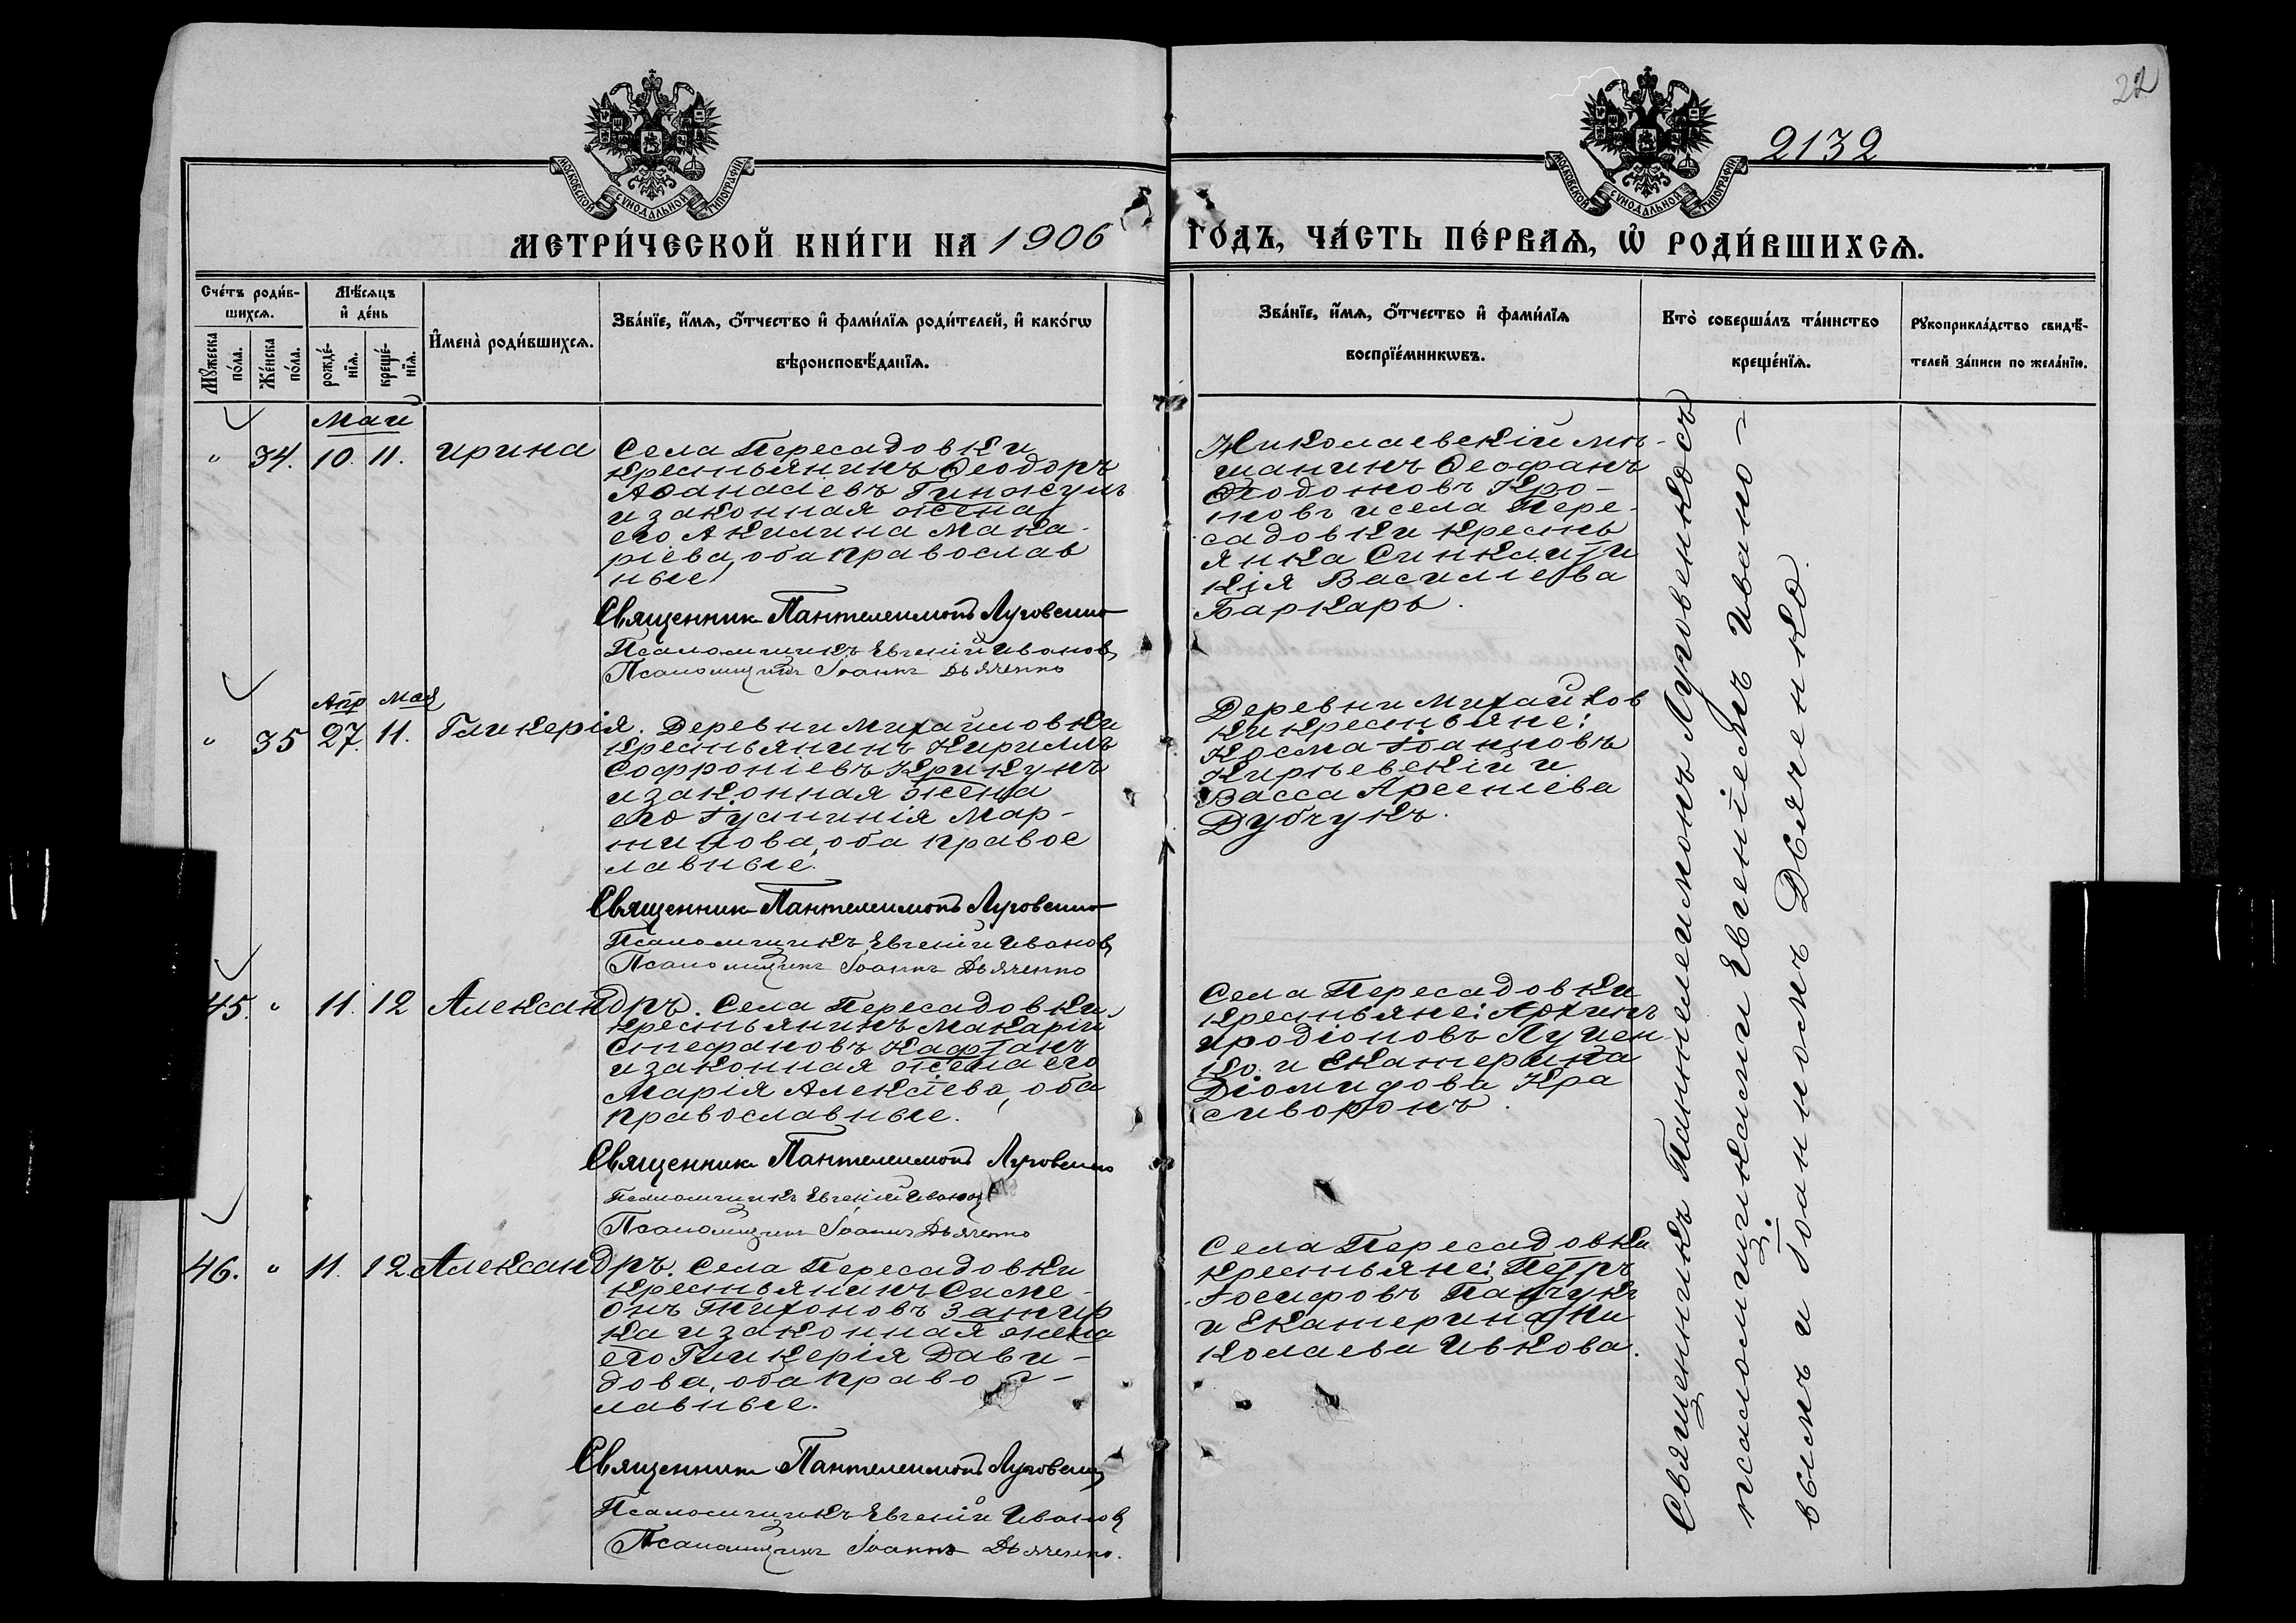 22
2132
МОСКОВСКОЙ СѴНОДАЛЬНОЙ ТИПОГРАФІИ
МОСКОВСКОЙ СѴНОДАЛЬНОЙ ТИПОГРАФІИ
МЕТРИ́ЧЕСКОЙ КНИ́ГИ НА 1906
ГО́ДЪ, ЧА́СТЬ ПЕ́РВАѦ, Ѽ РОДИ́ВШИХСѦ.
Сче́тъ роди́в-
шихсѧ.
Мꙋ́жеска
по́ла.
Же́нска
по́ла.
Мѣ́сѧцъ
и҆ де́нь
рожде́-
нїѧ.
креще́-
нїѧ.
И҆мена̀ роди́вшихсѧ.
Зва́нїе, и҆́мѧ, ѻ҆́тчество и҆ фами́лїѧ роди́телей, и҆ како́гѡ
вѣроисповѣ́данїѧ.
Зва́нїе, и҆́мѧ, ѻ҆́тчество и҆ фами́лїѧ
воспрїе́мникѡвъ.
Кто̀ соверша́лъ та́инство
креще́нїѧ.
Рꙋкоприкла́дство свидѣ́-
телей за́писи по жела́нїю.
Май
" 34. 10. 11. Ирина
Села Пересадовки
крестьянинъ Ѳеодоръ
Аѳанасіевъ Гинжулъ
и законная жена
его Акилина Мака-
ріева, оба православ
ные
Священник Пантелеимонъ Луговенко
Псаломщикъ Евгеній Иванов
Псаломщикъ Іоаннъ Дьяченко
Николаевскій мѣ-
щанинъ Ѳеофанъ
новъ и села Пере-
садовки кресть
янка Синклити
кія Василіева
Баркарь.
Апр Мая
" 35 27. 11. Гликерія.
Деревни Михайловки
крестьянинъ Кириллъ
Софроніевъ Крикунъ
и законная жена
его Іустинія Мар-
тинова, оба правос
лавные.
Священник Пантелеимонъ Луговенко
Псаломщикъ Евгеній Иванов
Псаломщикъ Іоаннъ Дьяченко
Деревни Михайлов
ки крестьяне:
Косма Іоанновъ
Кирьевскій и
Васса Арсеніева
Дубчукъ.
45. " 11. 12 Александръ.
Села Пересадовки
крестьянинъ Макарій
Стефановъ Кафтанъ
и законная жена его
Марія Алексіева, оба
православные.
Священник Пантелеимонъ Луговенко
Псаломщикъ Евгеній Иванов
Псаломщикъ Іоаннъ Дьяченко
Села Пересадовки
крестьяне: Архипъ
Иродіоновъ Луцен
ко и Екатерина
Діомидова Кра
сиворонъ.
46. " 11. 12. Александръ.
Села Пересадовки
крестьянинъ Симе-
онъ Тихоновъ
ка и законная жена
его Гликерія Дави-
дова, оба правос-
лавные.
Священник Пантелеимонъ Луговенко
Псаломщикъ Евгеній Иванов
Псаломщикъ Іоаннъ Дьяченко.
Села Пересадовки
крестьяне: Петръ
Іосифовъ Панчукъ
и Екатерина Ни
колаева Ивкова.
Священникъ Пантелеимонъ Луговенкосъ
псаломщиками Евгеніемъ Ивано-
вымъ и Іоанномъ Дьяченко.